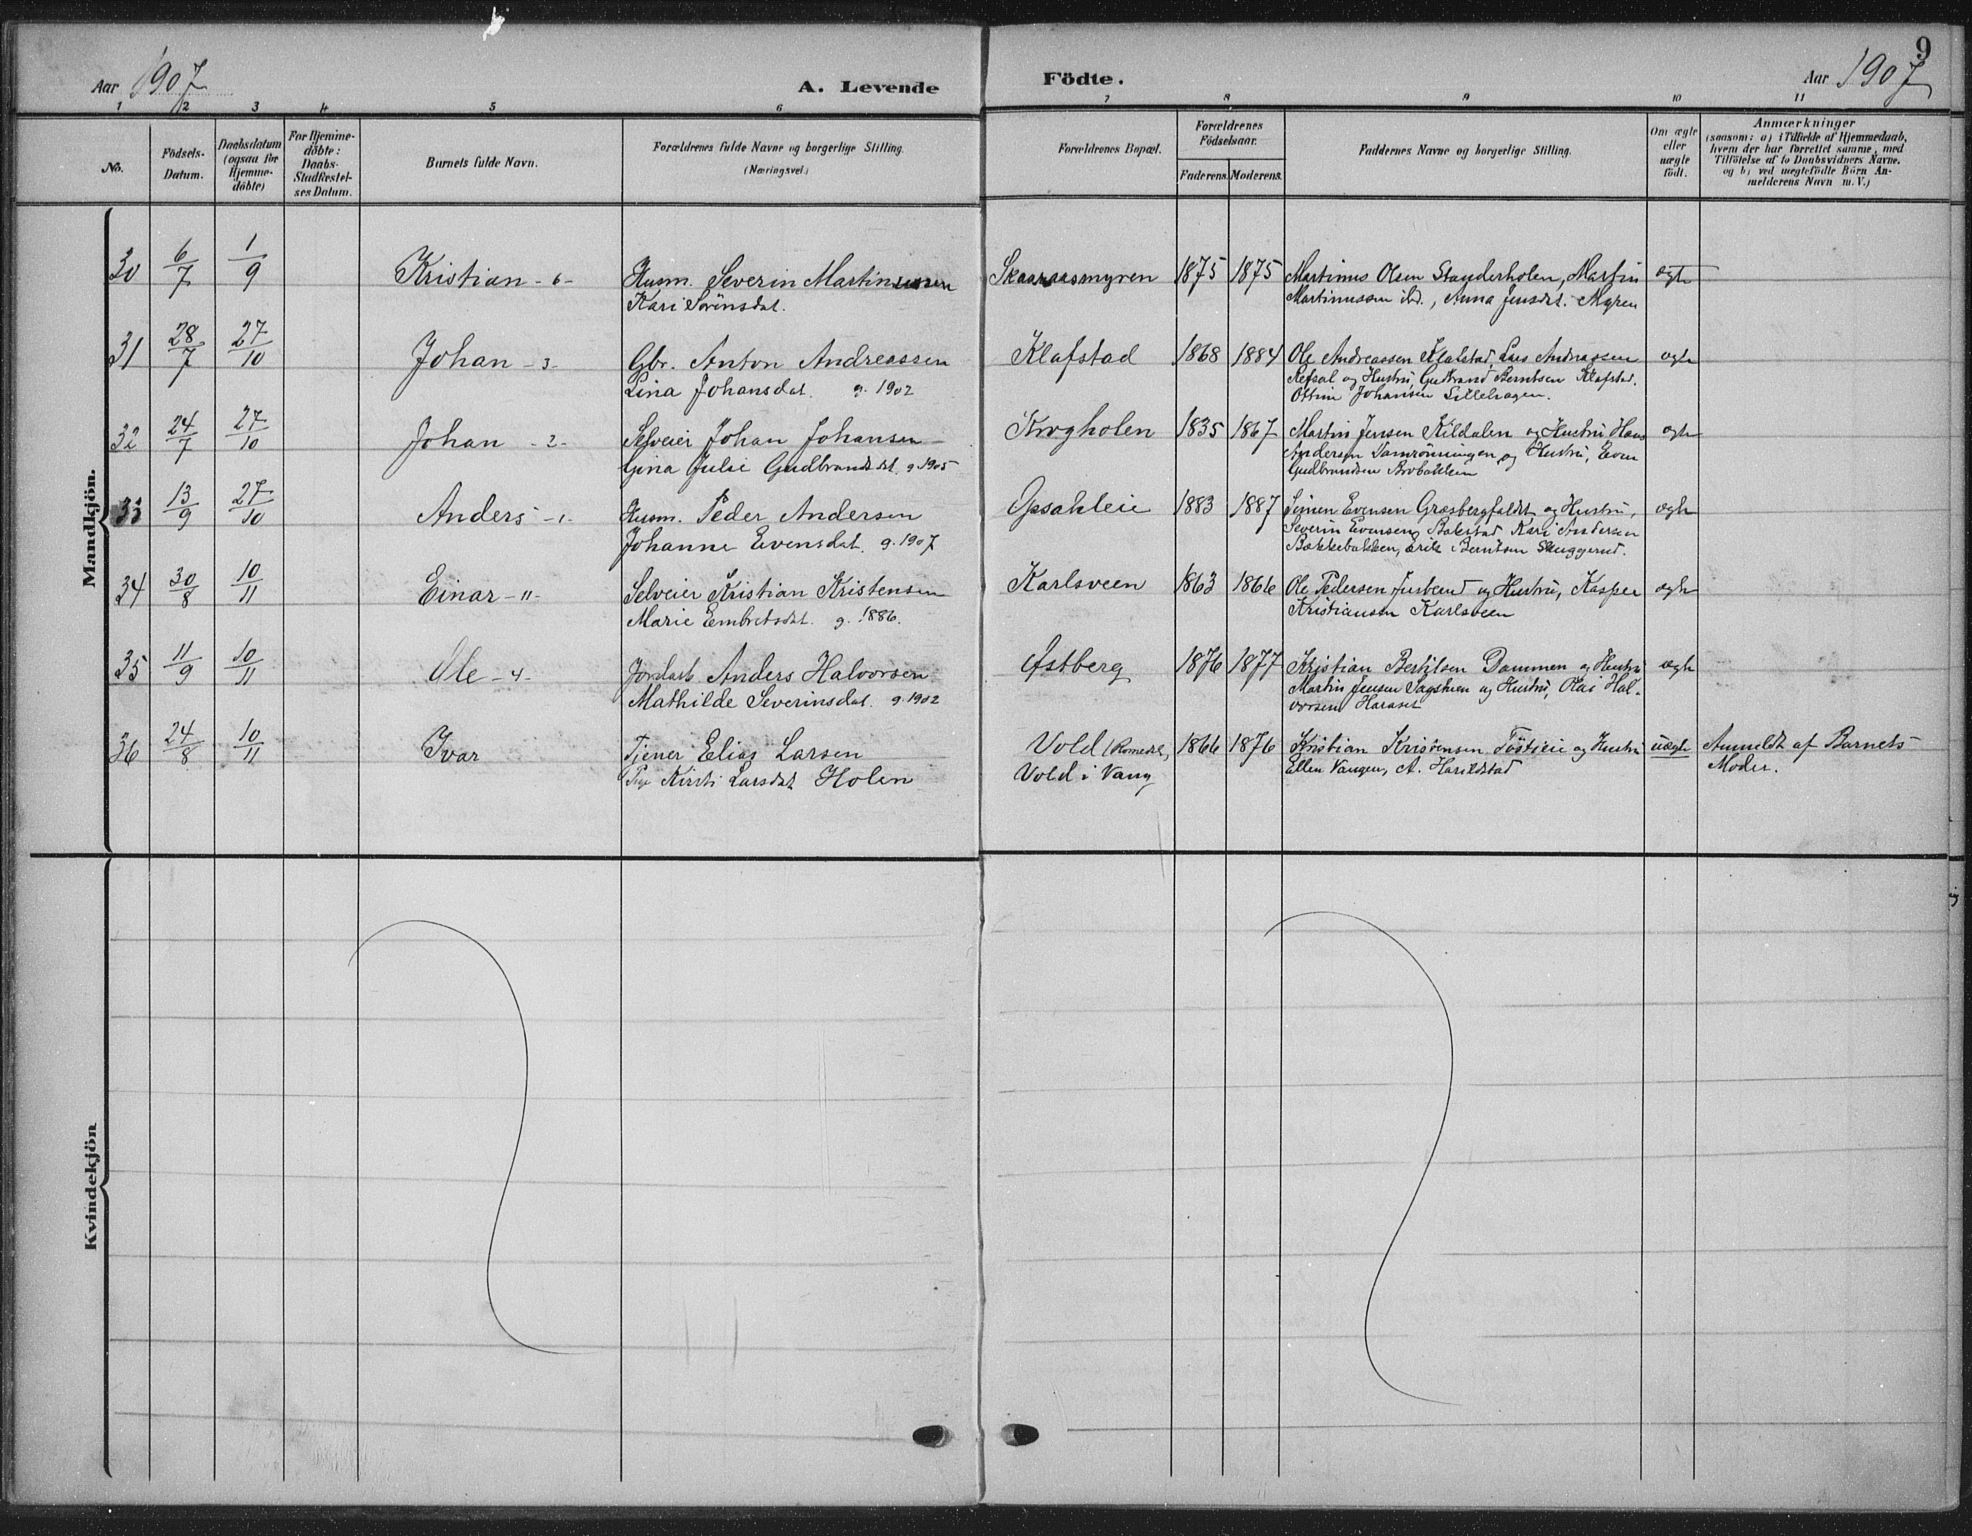 9
Aar 1907 A. Levende Födte. Aar 1907
1 2 3 4 5 6 7 8 9 10 11
No. Födsels-Datum. Daabsdatum (ogsaa for Hjemme-döbte) For Hjemme-döbte: Daabs-Stadfæstel-ses Datum. Barnets fulde Navn. Forældrenes fulde Navne og borgerlige Stilling. (Næringsvei.) Forældrenes Bopæl. Forældrenes Födselsaar. Faderens. Moderens. Faddernes Navne og borgerlige Stilling. Om ægte eller uægte födt. Anmærkninger (saasom: a) i Tilfælde af Hjemmedaab, hvem der har forrettet samme, med Tilföielse af to Daabsvidners Navne. og b) ved uægtefödte Börn An-melderens Navn m. V.)
Mandkjön.
30 6/7 1/9 Kristian -6- Husm. Severin Martinussen Skaaraasmyren 1875 1875 Martinus Olsen Standerholen, Martin ægte
Kari Sörensdat. Martinussen ibd., Anna Jensdat. Myren
31 28/7 27/10 Johan -3- Gbr. Anton Andreassen Klafstad 1868 1884 Ole Andreassen Klafstad, Lars Andreassen ægte
Lina Johansdat. g. 1902 Refsal og Hustru, Gudbrand Berntsen Klafstad.
Johansen Lillehagen.
32 24/7 27/10 Johan -2- Selveier Johan Johansen Krogholen 1835 1867 Martin Jensen Kildalen og Hustru Hans ægte
Gina Julie Gudbrandsdat. g. 1905 Andersen og Hustru, Even
Gudbrandsen Brobakken
33 13/9 27/10 Anders -1- Husm. Peder Andersen Opsahleie 1883 1887 Simen Evensen Græsbergfaldet og Hustru, ægte
Johanne Evensdat. g. 1907 Severin Evensen, Bakstad Kari Andersen
Bækkebakken, Erik Berntsen Skuggerud.
34 30/8 10/11 Einar -11- Selveier Kristian Kristensen Karlsveen 1863 1866 Ole Pedersen og Hustru, Kasper ægte
Marie Embretsdat. g. 1886. Kristiansen Karlsveen
35 11/9 10/11 Ole -4- Jordarb. Anders Halvorsen Østberg 1876 1877 Kristian Bertilsen Dammen og Hustru ægte
Mathilde Severinsdat. g. 1902 Martin Jensen Sagstuen og Hustru, Olai Hal-
vorsen Haraset
36 24/8 10/11 Ivar Tjener Elias Larsen Vold (Romedal, 1866 1876 Kristian Kristensen og Hustru uægte Anmeldt af Barnets
Pige Kirsti Larsdat Holen Vold i Vang Ellen Vangen, A. Harildstad Moder.
Kvindekjön